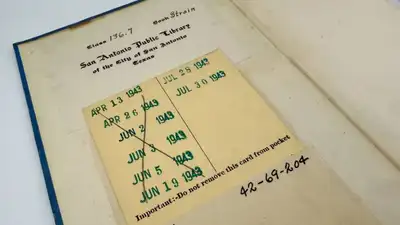 Class 136.7 Book Strain
San Antonio Public Library
of the City of San Antonio
Texas
APR 13 1943
APR 26 1943
JUN 2 1943
JUN 3 1943
JUN 5 1943
JUN 19 1943
JUL 29 1943
JUL 30 1943
Important:-Do not remove this card from pocket
42-69-204